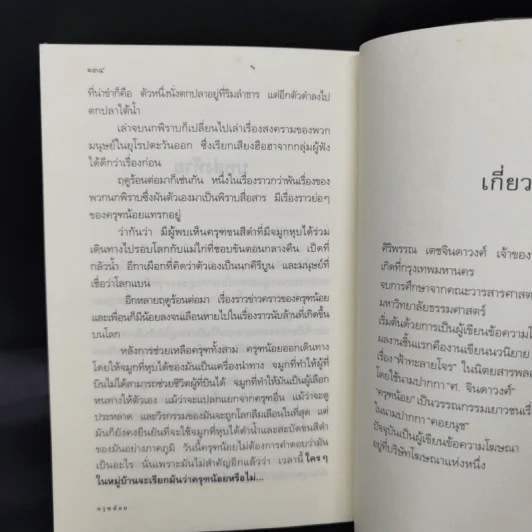 ๑๓๔
ที่น่าขำก็คือ ตัวหนึ่งนั่งตกปลาอยู่ที่ริมลำธาร แต่อีกตัวดำลงไป
ตกปลาใต้น้ำ
เล่าจบนกพิราบก็เปลี่ยนไปเล่าเรื่องสงครามของพวก
มนุษย์ในยุโรปตะวันออก ซึ่งเรียกเสียงฮือฮาจากกลุ่มผู้ฟัง
ได้ดีกว่าเรื่องก่อน
ฤดูร้อนต่อมาก็เช่นกัน หนึ่งในเรื่องราวกว่าพันเรื่องของ
พวกนกพิราบซึ่งผันตัวเองมาเป็นพิราบสื่อสาร มีเรื่องราวย่อๆ
ของครุฑน้อยแทรกอยู่
ว่ากันว่า มีผู้พบเห็นครุฑขนสีดำที่มีจมูกทุบได้ร่วม
เดินทางไปรอบโลกกับแม่ไก่ที่ชอบขันตอนกลางคืน เป็ดที่
กลัวน้ำ อีกาเผือกที่คิดว่าตัวเองเป็นนกคีรีบูน และมนุษย์ที่
เชื่อว่าโลกแบน
อีกหลายฤดูร้อนต่อมา เรื่องราวข่าวคราวของครุฑน้อย
และเพื่อนก็มีน้อยลงจนเลือนหายไปในเรื่องราวนับล้านที่เกิดขึ้น
บนโลก
หลังการช่วยเหลือครุฑทั้งสาม ครุฑน้อยออกเดินทาง
โดยให้จมูกที่ทุบได้ของมันเป็นเครื่องนำทาง จมูกที่ทำให้ผู้ที่
บินไม่ได้สามารถช่วยชีวิตผู้ที่บินได้ จมูกที่ทำให้มันเป็นผู้เลือก
หนทางให้ตัวเอง แม้ว่าจะแปลกแยกจากครุฑอื่น แม้ว่าจะดู
ประหลาด และวีรกรรมของมันจะถูกโลกลืมเลือนในที่สุด แต่
มันก็ยังคงยืนยันที่จะใช้จมูกทุบได้ดำน้ำและสะบัดขนสีดำ
ของมันอย่างภาคภูมิ วันนี้ครุฑน้อยไม่ต้องการคำตอบว่ามัน
เป็นอะไร นั่นเพราะมันไม่สำคัญอีกแล้วว่า เวลานี้ใครๆ
ในหมู่บ้านจะเรียกมันว่าครุฑน้อยหรือไม่...
ครุฑน้อย
เกี่ยว
ศิริพรรณ เตชจินดาวงศ์ เจ้าของ
เกิดที่กรุงเทพมหานคร
จบการศึกษาจากคณะวารสารศาสตร์
มหาวิทยาลัยธรรมศาสตร์
เริ่มต้นด้วยการเป็นผู้เขียนข้อความโ
ผลงานชิ้นแรกคืองานเขียนนวนิยาย
เรื่อง "ฟ้าทะลายโจร" ในนิตยสารพลอ
โดยใช้นามปากกา "ศ. จินดาวงศ์"
"ครุฑน้อย" เป็นวรรณกรรมเยาวชนเรื่
ในนามปากกา "คอยนุช"
ปัจจุบันเป็นผู้เขียนข้อความโฆษณา
อยู่ที่บริษัทโฆษณาแห่งหนึ่ง